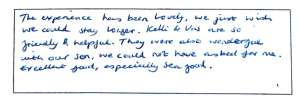 The experience has been lovely, we just wish
we could stay longer. Kelli & Vris are so
friendly & helpful. They were also wonderful
with our son, we could not have asked for me.
Excellent food, especially sea food.